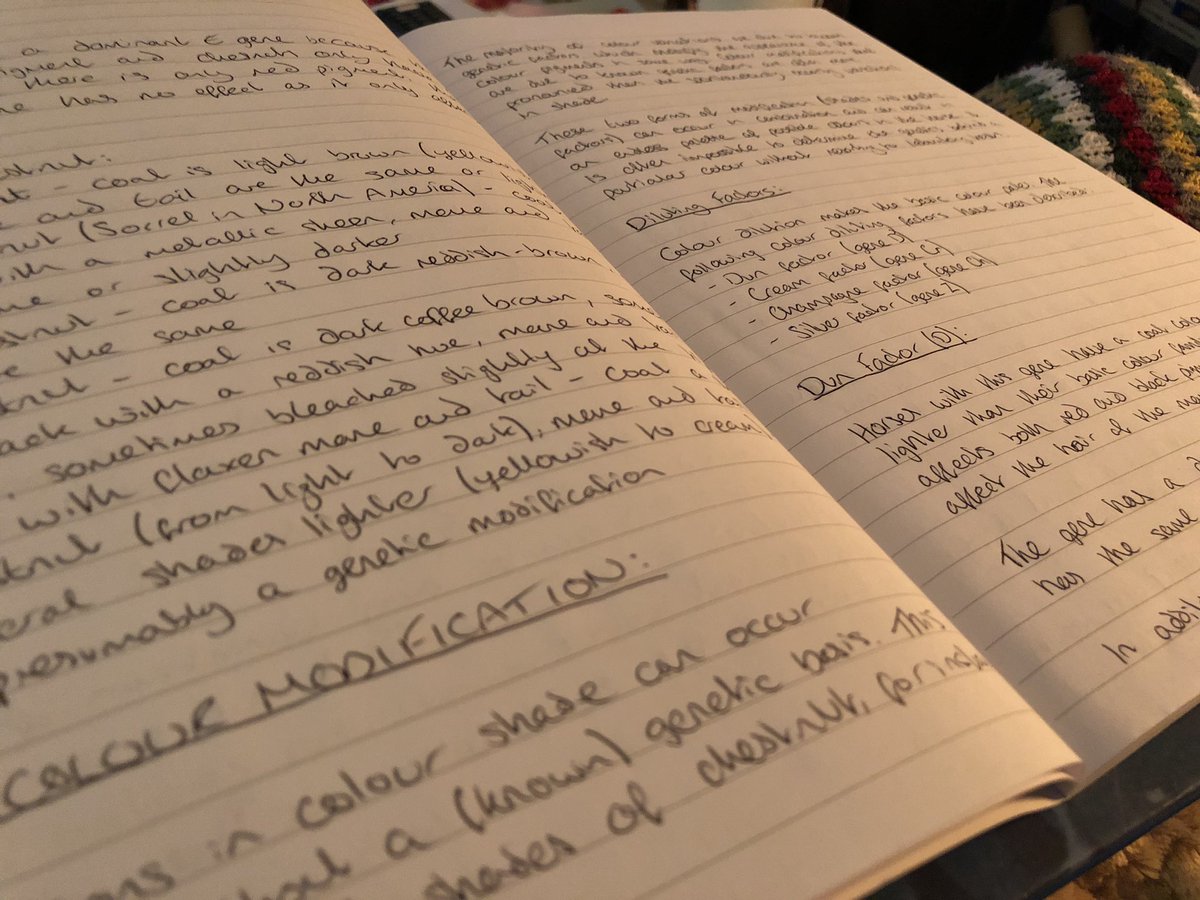 a dominant E gene because
pigment and chestnuts only have
there is only red pigment. The
has no effect as it only
- coat is light brown (yellow
and tail are the same or
(Sorrel in North America) -
with a metallic sheen, mane and
or slightly darker
- coat is dark reddish-brown,
the same
- coat is dark coffee brown,
with a reddish hue, mane and
sometimes bleached slightly at the
with flaxen mane and tail - coat
(from light to dark), mane and
shades lighter (yellowish to cream
presumably a genetic modification
COLOUR MODIFICATION:
in colour shade can occur
a (known) genetic basis. This
shades of chestnut, for
The majority of colour variations are due to
genetic factors which modify the appearance of the
colour pigments in some way. Colour modifications
are due to known genetic factors are often more
pronounced than the
in shade.
These two forms of modification (shades and genetic
factors) can occur in combination and can result in
an endless palette of possible colours in the horse. It
is often impossible to determine the genetics behind a
particular colour without resorting to laboratory
Diluting Factors:
Colour dilution makes the basic colour paler. The
following colour diluting factors have been described:
- Dun factor (gene D)
- Cream factor (gene Cr)
- Champagne factor (gene Ch)
- Silver factor (gene Z)
Dun Factor (D):
Horses with this gene have a coat
lighter than their basic colour
affects both red and black
affect the hair of the
The gene has a
has the same
In